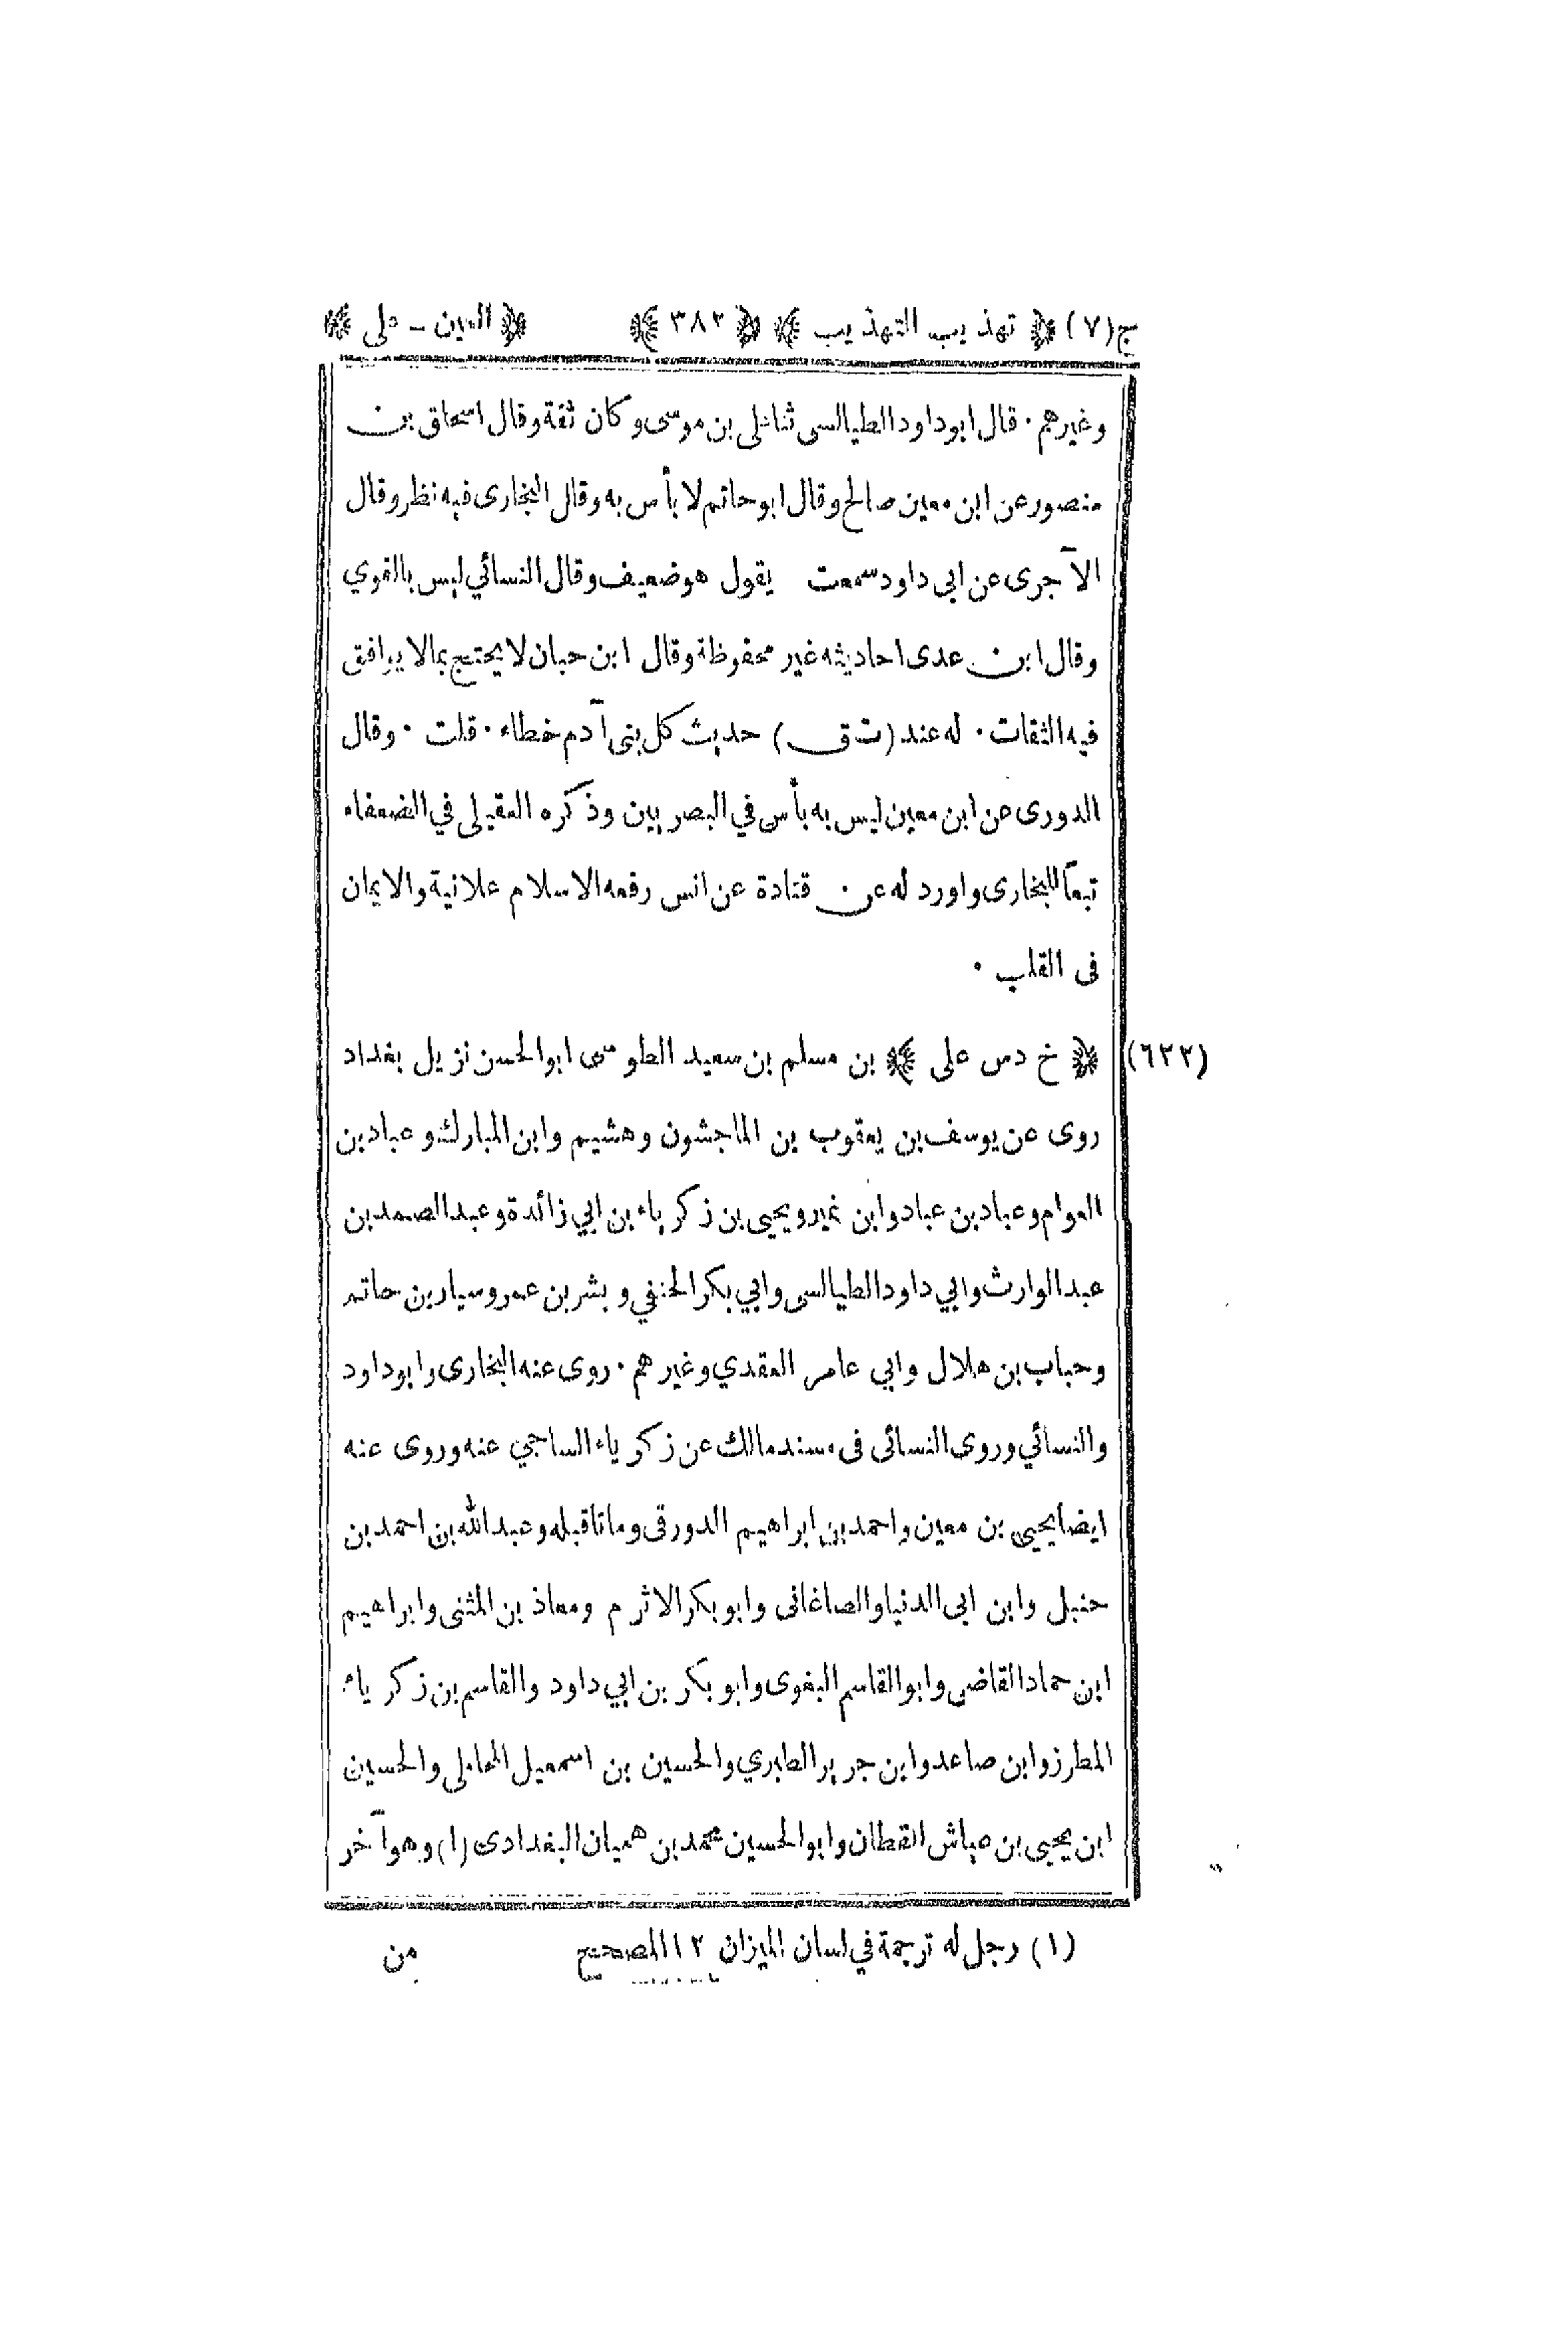 ج(٧) ﴿ تهذيب التهذيب ﴾ ﴿ ٣٨٢ ﴾ ﴿ العين - على ﴾
وغيرهم · قال ابو داود الطيالسى ثنا على بن موسى وكان ثقة وقال اسحاق بن
منصور عن ابن معين صالح وقال ابو حاتم لا بأس به وقال البخارى فيه نظر وقال
الآجرى عن ابى داود سمعت يقول هو ضعيف وقال النسائي ليس بالقوي
وقال ابن عدى احاديثه غير محفوظة وقال ابن حبان لا يحتج بما لا يوافق
فيه الثقات · له عند (ت ق) حديث كل بنى آدم خطاء · قلت · وقال
الدورى عن ابن معين ليس به بأس في البصريين وذكره العقيلى في الضعفاء
تبعاً للبخارى واورد له عن قتادة عن انس رفعه الاسلام علانية والايمان
فى القلب ·
(٦٢٢) ﴿ خ د س على ﴾ بن مسلم بن سعيد الطوسى ابو الحسن نزيل بغداد
روى عن يوسف بن يعقوب بن الماجشون وهشيم وابن المبارك وعباد بن
العوام وعباد بن عباد وابن نمير ويحيى بن زكرياء بن ابي زائدة وعبد الصمد بن
عبد الوارث وابي داود الطيالسى وابي بكر الحنفي وبشر بن عمر وسيار بن حاتم
وحباب بن هلال وابي عامر العقدي وغيرهم · روى عنه البخارى وابو داود
والنسائي وروى النسائى فى مسند مالك عن زكرياء الساجي عنه وروى عنه
ايضا يحيى بن معين واحمد بن ابراهيم الدورقى وماتا قبله وعبد الله بن احمد بن
حنبل وابن ابى الدنيا والصاغانى وابو بكر الاثرم ومعاذ بن المثنى وابراهيم
ابن حماد القاضى وابو القاسم البغوى وابو بكر بن ابي داود والقاسم بن زكرياء
المطرز وابن صاعد وابن جرير الطبري والحسين بن اسمعيل المحاملى والحسين
ابن يحيى بن عياش القطان وابو الحسين محمد بن هميان البغدادى (١) وهو آخر
(١) رجل له ترجمة في لسان الميزان ١٢ المصحح
من